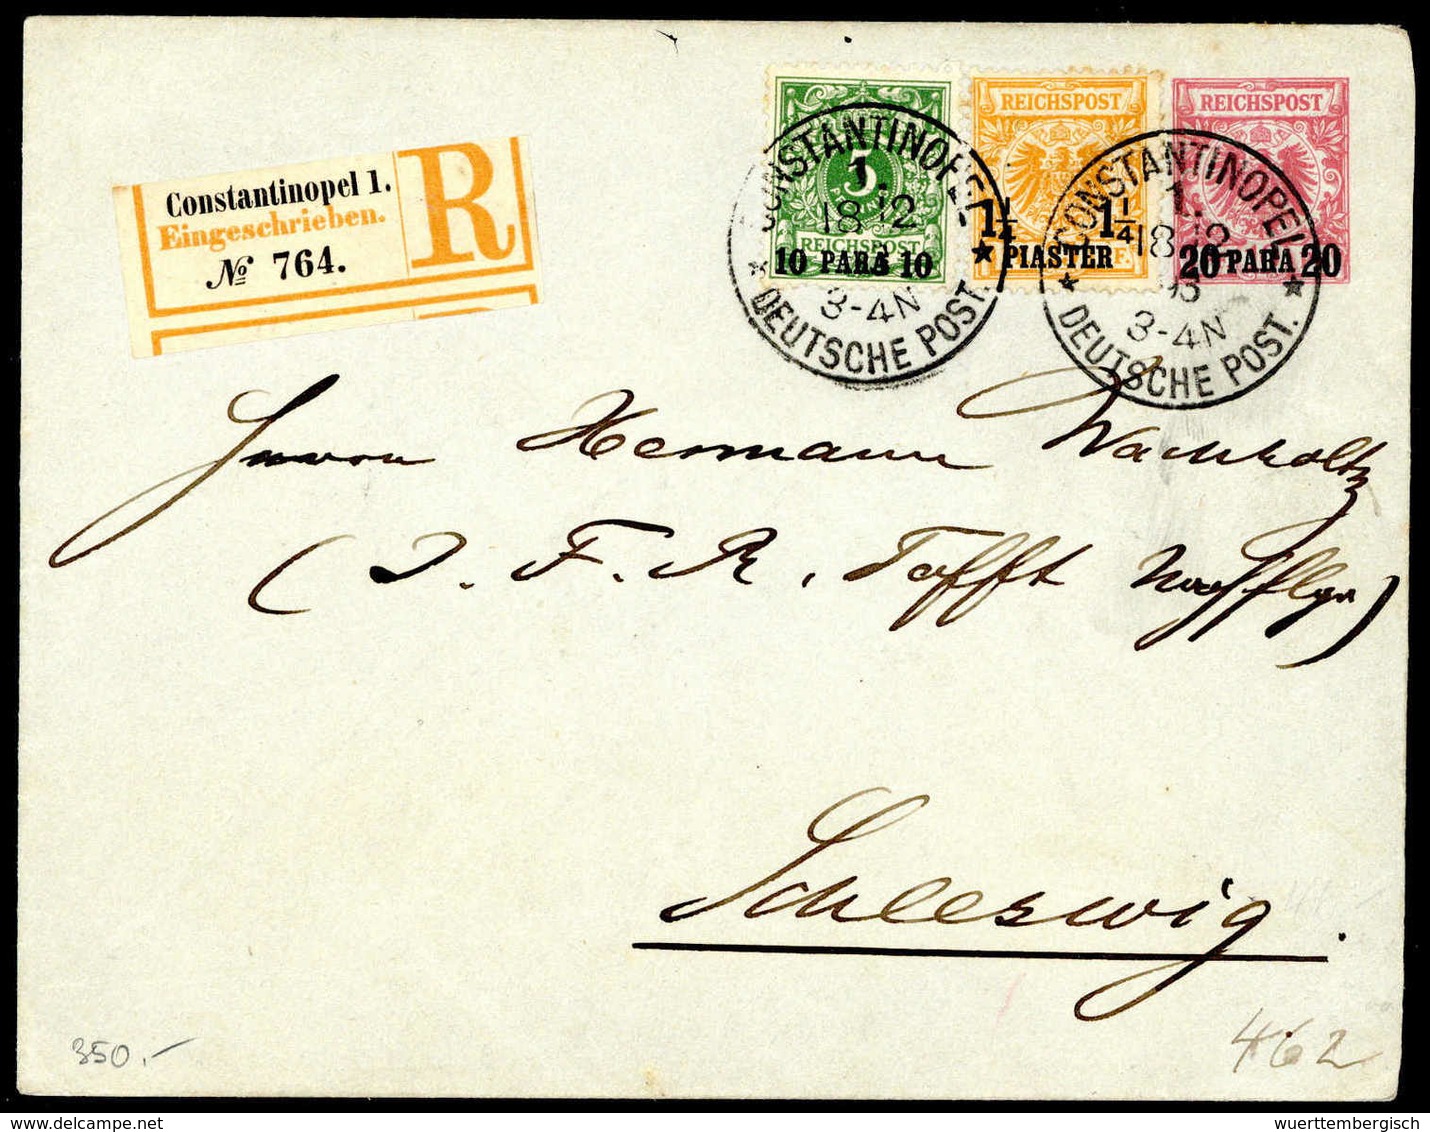 Constantinopel 1.
Eingeschrieben.
№ 764.
R
5
REICHSPOST
10 PARA 10
REICHSPOST
1¼ PIASTER 1¼
REICHSPOST
20 PARA 20
CONSTANTINOPEL
1.
18 12
3-4N
* DEUTSCHE POST. *
CONSTANTINOPEL
1.
18 12
95
3-4N
* DEUTSCHE POST. *
Herrn Hermann Wachholtz
(J. F. R. Tofft
Schleswig.
350.-
462
wuerttembergisch